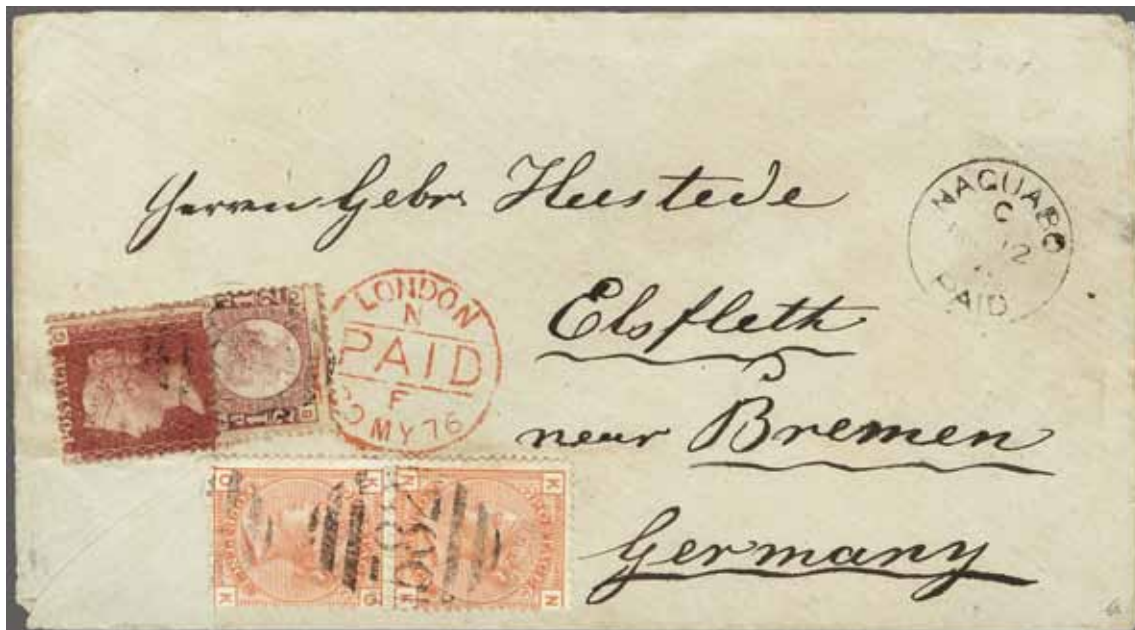 Herrn Gebr Hustede
Elsfleth
near Bremen
Germany
NAGUABO
C
12
PAID
LONDON
N
PAID
F
MY 76
POSTAGE